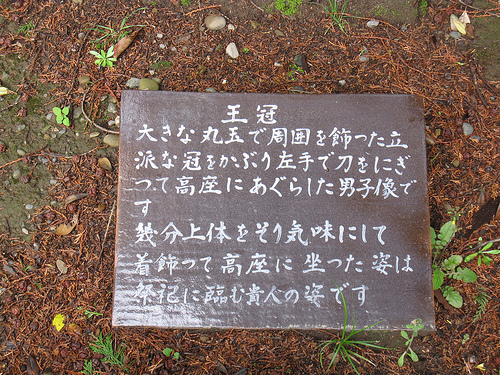 王冠
大きな丸玉で周囲を飾った立
派な冠をかぶり左手で刀をにぎ
って高座にあぐらした男子像で
す
幾分上体をそり気味にして
着飾って高座に坐った姿は
祭祀に臨む貴人の姿です